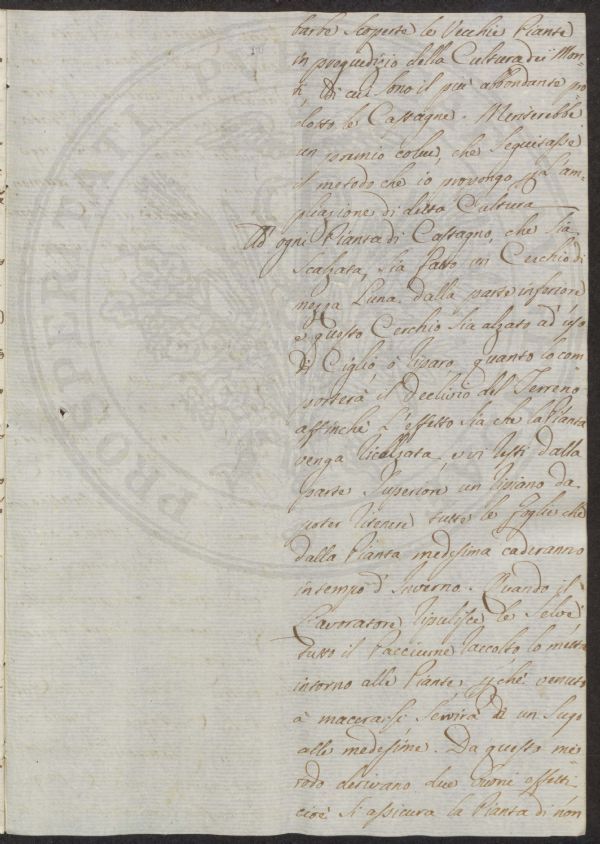 barbe scoperte le Vecchie Piante
in pregiudicio della Cultura dei Mon-
ti, di cui sono il più abbondante pro
dotto le Castagne. Meriterebbe
un premio colui, che seguitasse
il metodo che io propongo p. L'am-
pliazione di detta Cultura
Ad ogni Pianta di Castagno, che sia
Scalzata, sia fatto un Cerchio di
mezza Luna dalla parte inferiore
e questo Cerchio sia alzato ad uso
di Ciglio, o riparo, quanto lo com
porterà il Declivio del Terreno
affinchè L'effetto sia che la Pianta
venga ricalzata, e vi resti dalla
parte superiore un ripiano da
poter ritenere tutte le foglie che
dalla Pianta medesima caderanno
in tempo d'Inverno. Quando il
Lavoratore ripulisce le Selve
tutto il Pacciume raccolto lo metta
intorno alle Piante, p.chè venuto
à macerarsi servirà di un Sugo
alle medesime. Da questo me
todo derivano due buoni effetti
cioè si assicura la Pianta di non
PROSPERITATI PUB